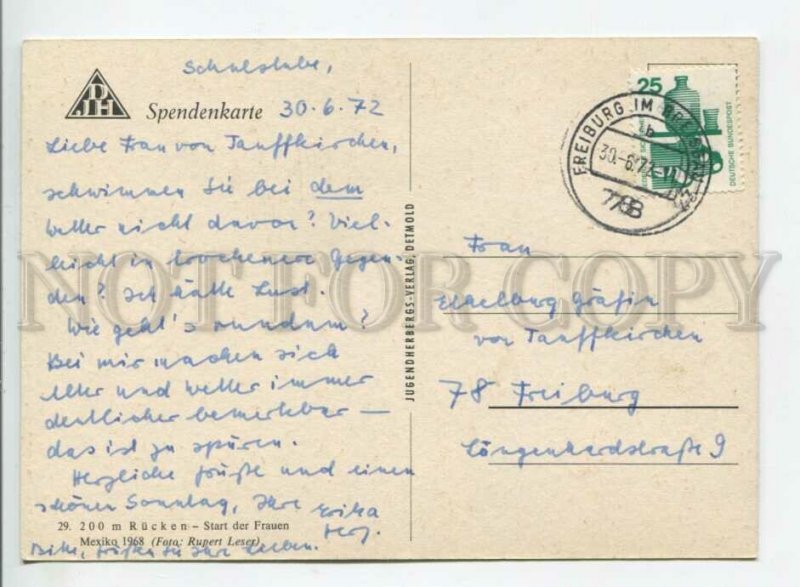 Schulstube,
DJH
Spendenkarte 30.6.72
Liebe Frau von Tauffkirchen,
schwimmen Sie bei dem
Wetter nicht davon? Viel-
leicht in trockenere Gegen-
den? Ich hätte Lust.
Wie geht's rundum?
Bei mir machen sich
Alter und Wetter immer
deutlicher bemerkbar —
das ist zu spüren.
Herzliche Grüße und einen
schönen Sonntag, Ihre Erika
29. 200 m Rücken – Start der Frauen
Mexiko 1968 (Foto: Rupert Leser)
Bitte, grüßen Sie Ihre
JUGENDHERBERGS-VERLAG, DETMOLD
25
DEUTSCHE BUNDESPOST
FREIBURG IM BREISGAU
b
30.-6.72
Frau
Gräfin
von Tauffkirchen
78 Freiburg
9
NOT FOR COPY